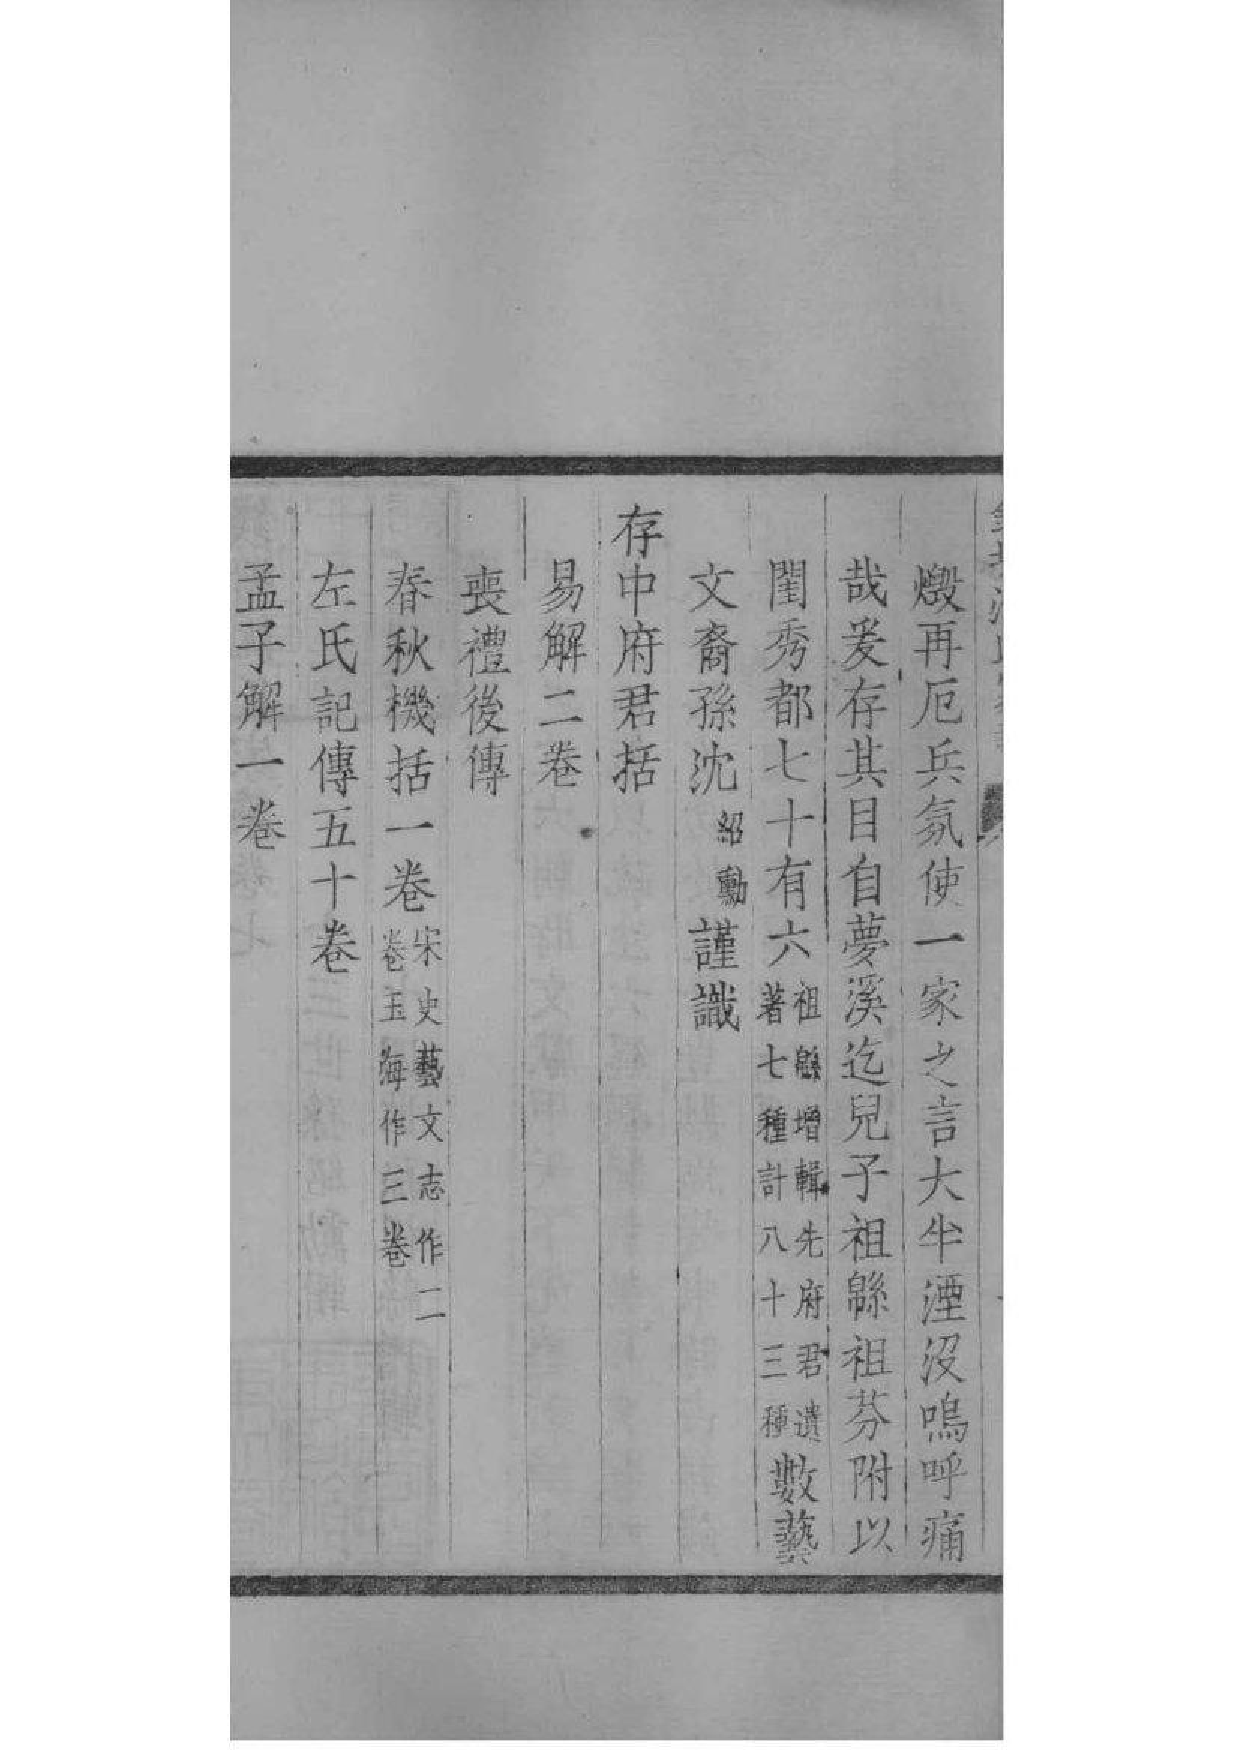 燬再厄兵氛使一家之言大半湮沒嗚呼痛
哉爰存其目自夢溪迄兒子祖緜祖芬附以
閨秀都七十有六祖緜增輯先府君遺著七種計八十三種數藝
文裔孫沈紹勳謹識
存中府君括
易解二卷
喪禮後傳
春秋機括一卷宋史藝文志作二卷玉海作三卷
左氏記傳五十卷
孟子解一卷